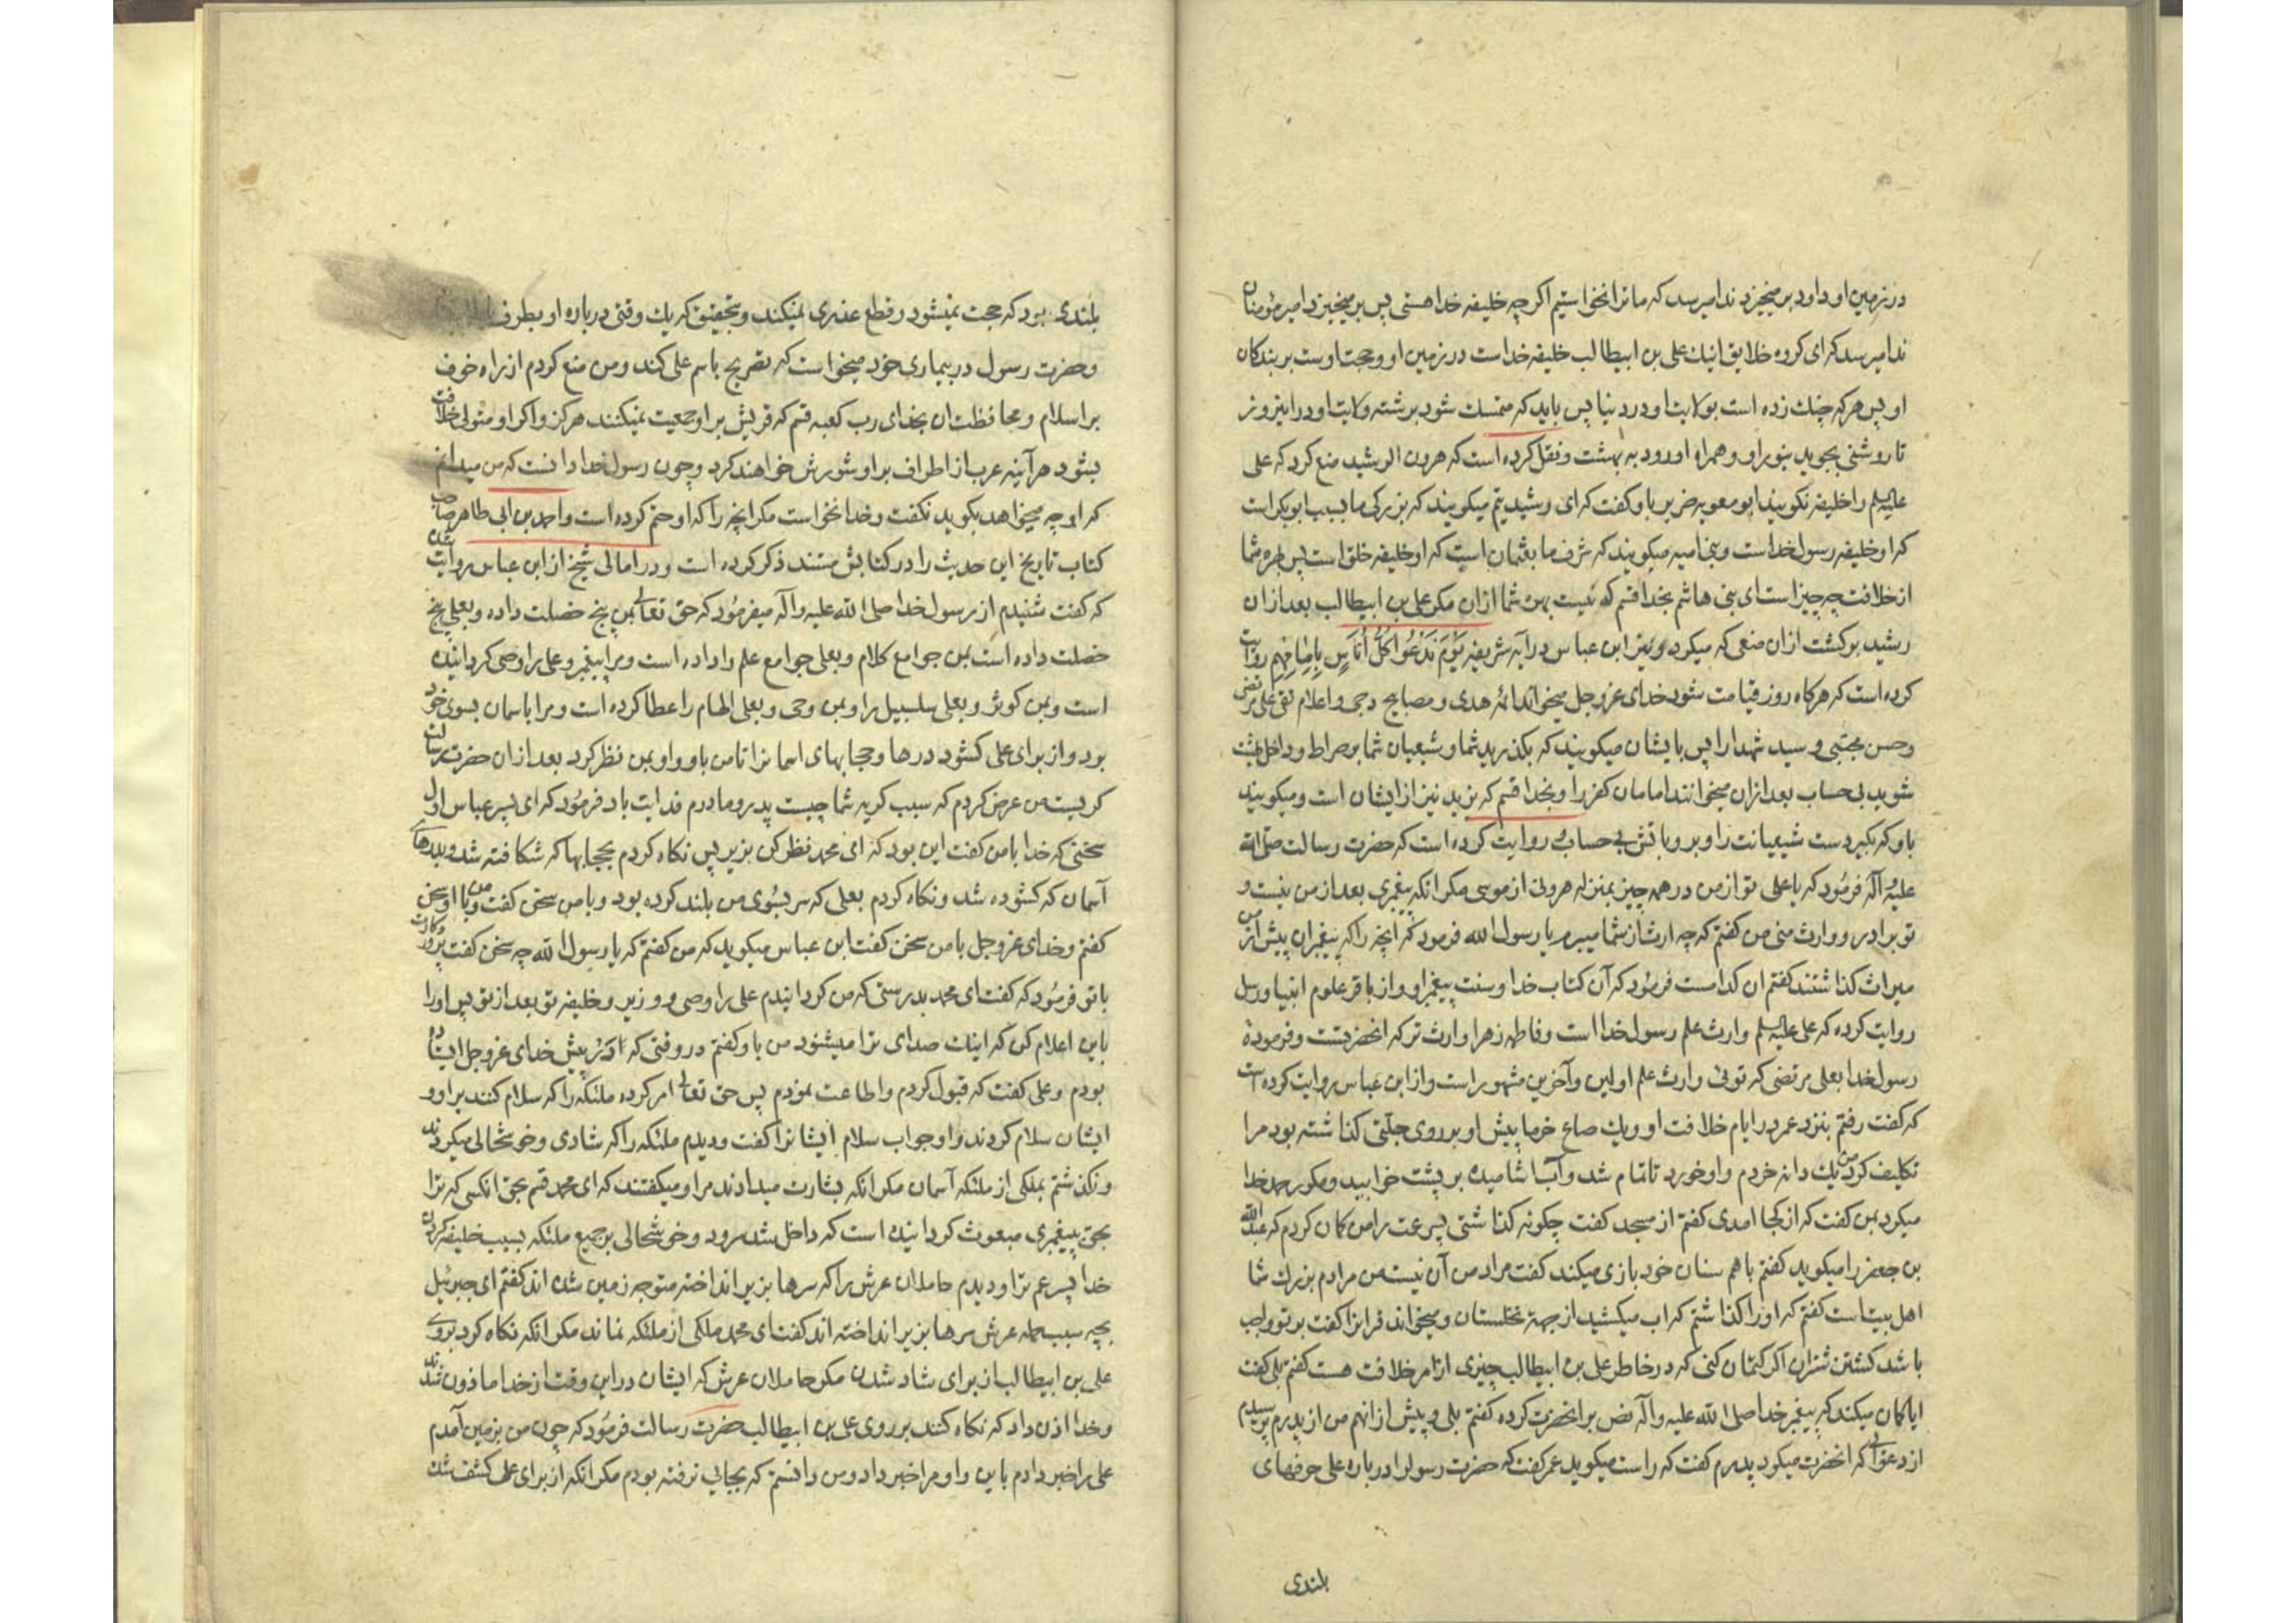 در زمین او داود برمیخیزد ندا میرسد که ما ترا نخواستیم اکرچه خلیفه خدا هستی پس برمیخیزد امیر مؤمنان
ندا میرسد که ای کروه خلایق اینك علی بن ابیطالب خلیفه خداست در زمین او و حجت اوست بر بندکان
او پس هرکه چنك زده است بولایت او در دنیا پس باید که متمسك شود برشته ولایت او در اینروز
تا روشنی بجوید بنور او و همراه او رود به بهشت و نقل کرده است که هرون الرشید منع کرد که علی
علیه السلم را خلیفه نکویند ابو معویه ضریر باو کفت که ای رشید یتم میکویند که بزرکی ما بسبب ابوبکر است
که او خلیفه رسول خداست و بنی امیه میکویند که شرف ما بعثمان است که او خلیفه خلق است پس بهره شما
از خلافت چه چیز است ای بنی هاشم بخدا قسم که نیست بهره شما ازان مکر علی بن ابیطالب بعد ازان
رشید برکشت ازان منعی که میکرد و نیز ابن عباس در آیه شریفه یَوْمَ نَدْعُوا کُلَّ اُنَاسٍ بِاِمَامِهِم روایت
کرده است که هرکاه روز قیامت شود خدای عز و جل میخواند ائمه هدی و مصابیح دجی و اعلام تقی علی مرتضی
و حسن مجتبی و سید شهدا را پس بایشان میکویند که بکذرید شما و شیعیان شما بر صراط و داخل بهشت
شوید بی حساب بعد ازان میخوانند امامان کفر را و بخدا قسم که یزید نیز از ایشان است و میکویند
باو که بکیر دست شیعیانت را و برو باتش بی حساب و روایت کرده است که حضرت رسالت صلی الله
علیه و آله فرمود که یا علی تو از من در همه چیز بمنزله هرونی از موسی مکر انکه پیغمبری بعد از من نیست و
تو برادر و وارث منی من کفتم که چه ارث از شما میبرم یا رسول الله فرمود که انچه را که پیغمبران پیش از من
میراث کذاشتند کفتم ان کدامست فرمود که آن کتاب خدا و سنت پیغمبر او و از باقر علوم انبیا و رسل
روایت کرده که علی علیه السلم وارث علم رسول خدا است و فاطمه زهرا وارث ترکه انحضرتست و فرموده
رسول خدا بعلی مرتضی که توئی وارث علم اولین و آخرین مشهور است و از ابن عباس روایت کرده است
که کفت رفتم بنزد عمر در ایام خلافت او و یك صاع خرما پیش او بر روی جلتی کذاشته بود مرا
تکلیف کرد من یك دانه خردم و او خورد تا تمام شد و آب اشامیده بر پشت خوابید و مکرر حمد خدا
میکرد بمن کفت که از کجا امدی کفتم از مسجد کفت چکونه کذاشتی پسر عمت را من کمان کردم که عبد الله
بن جعفر را میکوید کفتم با هم سنان خود بازی میکند کفت مراد من آن نیست من مرادم بزرك شما
اهل بیت است کفتم که او را کذاشتم که اب میکشید از جهة نخلستان و میخواند قرانرا کفت بر تو واجب
باشد کشتن شتران اکر کتمان کنی که در خاطر علی بن ابیطالب چیزی از امر خلافت هست کفتم بلی کفت
ایا کمان میکند که پیغمبر خدا صلی الله علیه و آله نص بر انحضرت کرده کفتم بلی و پیش از انهم من از پدرم پرسیدم
از دعوائی که انحضرت میکرد پدرم کفت که راست میکوید عمر کفت که حضرت رسولرا درباره علی حرفهای
بلندی
بلندی بود که حجت نمیشود و قطع عذری نمیکند و بتحقیق که یك وقتی درباره او بطرف
و حضرت رسول در بیماری خود میخواست که تصریح باسم علی کند و من منع کردم از راه خوف
بر اسلام و محافظت ان بخدای رب کعبه قسم که قریش بر او جمعیت نمیکنند هرکز و اکر او متولی خلافت
بشود هرآینه عرب از اطراف بر او شورش خواهند کرد و چون رسول خدا دانست که من میدانم
که او چه میخواهد بکوید نکفت و خدا نخواست مکر انچه را که او حتم کرده است و احمد بن ابی طاهر صاحب
کتاب تاریخ این حدیث را در کتابش مستند ذکر کرده است و در امالی شیخ از ابن عباس روایت شده
که کفت شنیدم از رسول خدا صلی الله علیه و آله میفرمود که حق تعالی بمن پنج خصلت داده و بعلی پنج
خصلت داده است بمن جوامع کلام و بعلی جوامع علم را داده است و مرا پیغمبر و علی را وصی کردانیده
است و بمن کوثر و بعلی سلسبیل را و بمن وحی و بعلی الهام را عطا کرده است و مرا باسمان بسوی خود
بود و از برای علی کشود درها و حجابهای اسمانرا تا من باو و او بمن نظر کرد بعد ازان حضرت رسالت
کریست من عرض کردم که سبب کریه شما چیست پدر و مادرم فدایت باد فرمود که ای پسر عباس اول
سخنی که خدا با من کفت این بود که ای محمد نظر کن بزیر پس نکاه کردم بحجابها که شکافته شد و بدرهای
آسمان که کشوده شد و نکاه کردم بعلی که سر بسوی من بلند کرده بود و با من سخن کفت و من با او سخن
کفتم و خدای عز و جل با من سخن کفت ابن عباس میکوید که من کفتم که یا رسول الله چه سخن کفت پروردکارت
با تو فرمود که کفت ای محمد بدرستی که من کردانیدم علی را وصی و وزیر و خلیفه تو بعد از تو پس او را
باین اعلام کن که اینك صدای ترا میشنود من باو کفتم در وقتی که در پیش خدای عز و جل ایستاده
بودم و علی کفت که قبول کردم و اطاعت نمودم پس حق تعالی امر کرده ملئکه را که سلام کنند بر او و
ایشان سلام کردند و او جواب سلام ایشانرا کفت و دیدم ملئکه را که شادی و خوشحالی میکردند
و نکذشتم بملکی از ملئکه آسمان مکر انکه بشارت میدادند مرا و میکفتند که ای محمد قسم بحق انکسی که ترا
بحق پیغمبری مبعوث کردانیده است که داخل شد سرور و خوشحالی بر جمیع ملئکه بسبب خلیفه کردن
خدا پسر عم ترا و دیدم حاملان عرش را که سرها بزیر انداخته متوجه زمین شده اند کفتم ای جبرئیل
بچه سبب حمله عرش سرها بزیر انداخته اند کفت ای محمد ملکی از ملئکه نماند مکر انکه نکاه کرد بروی
علی بن ابیطالب از برای شاد شدن مکر حاملان عرش که ایشان در این وقت از خدا ماذون شدند
و خدا اذن داد که نکاه کنند بر روی علی بن ابیطالب حضرت رسالت فرمود که چون من بزمین آمدم
علی را خبر دادم باین و او مرا خبر داد و من دانستم که بجایی نرفته بودم مکر انکه از برای علی کشف شد